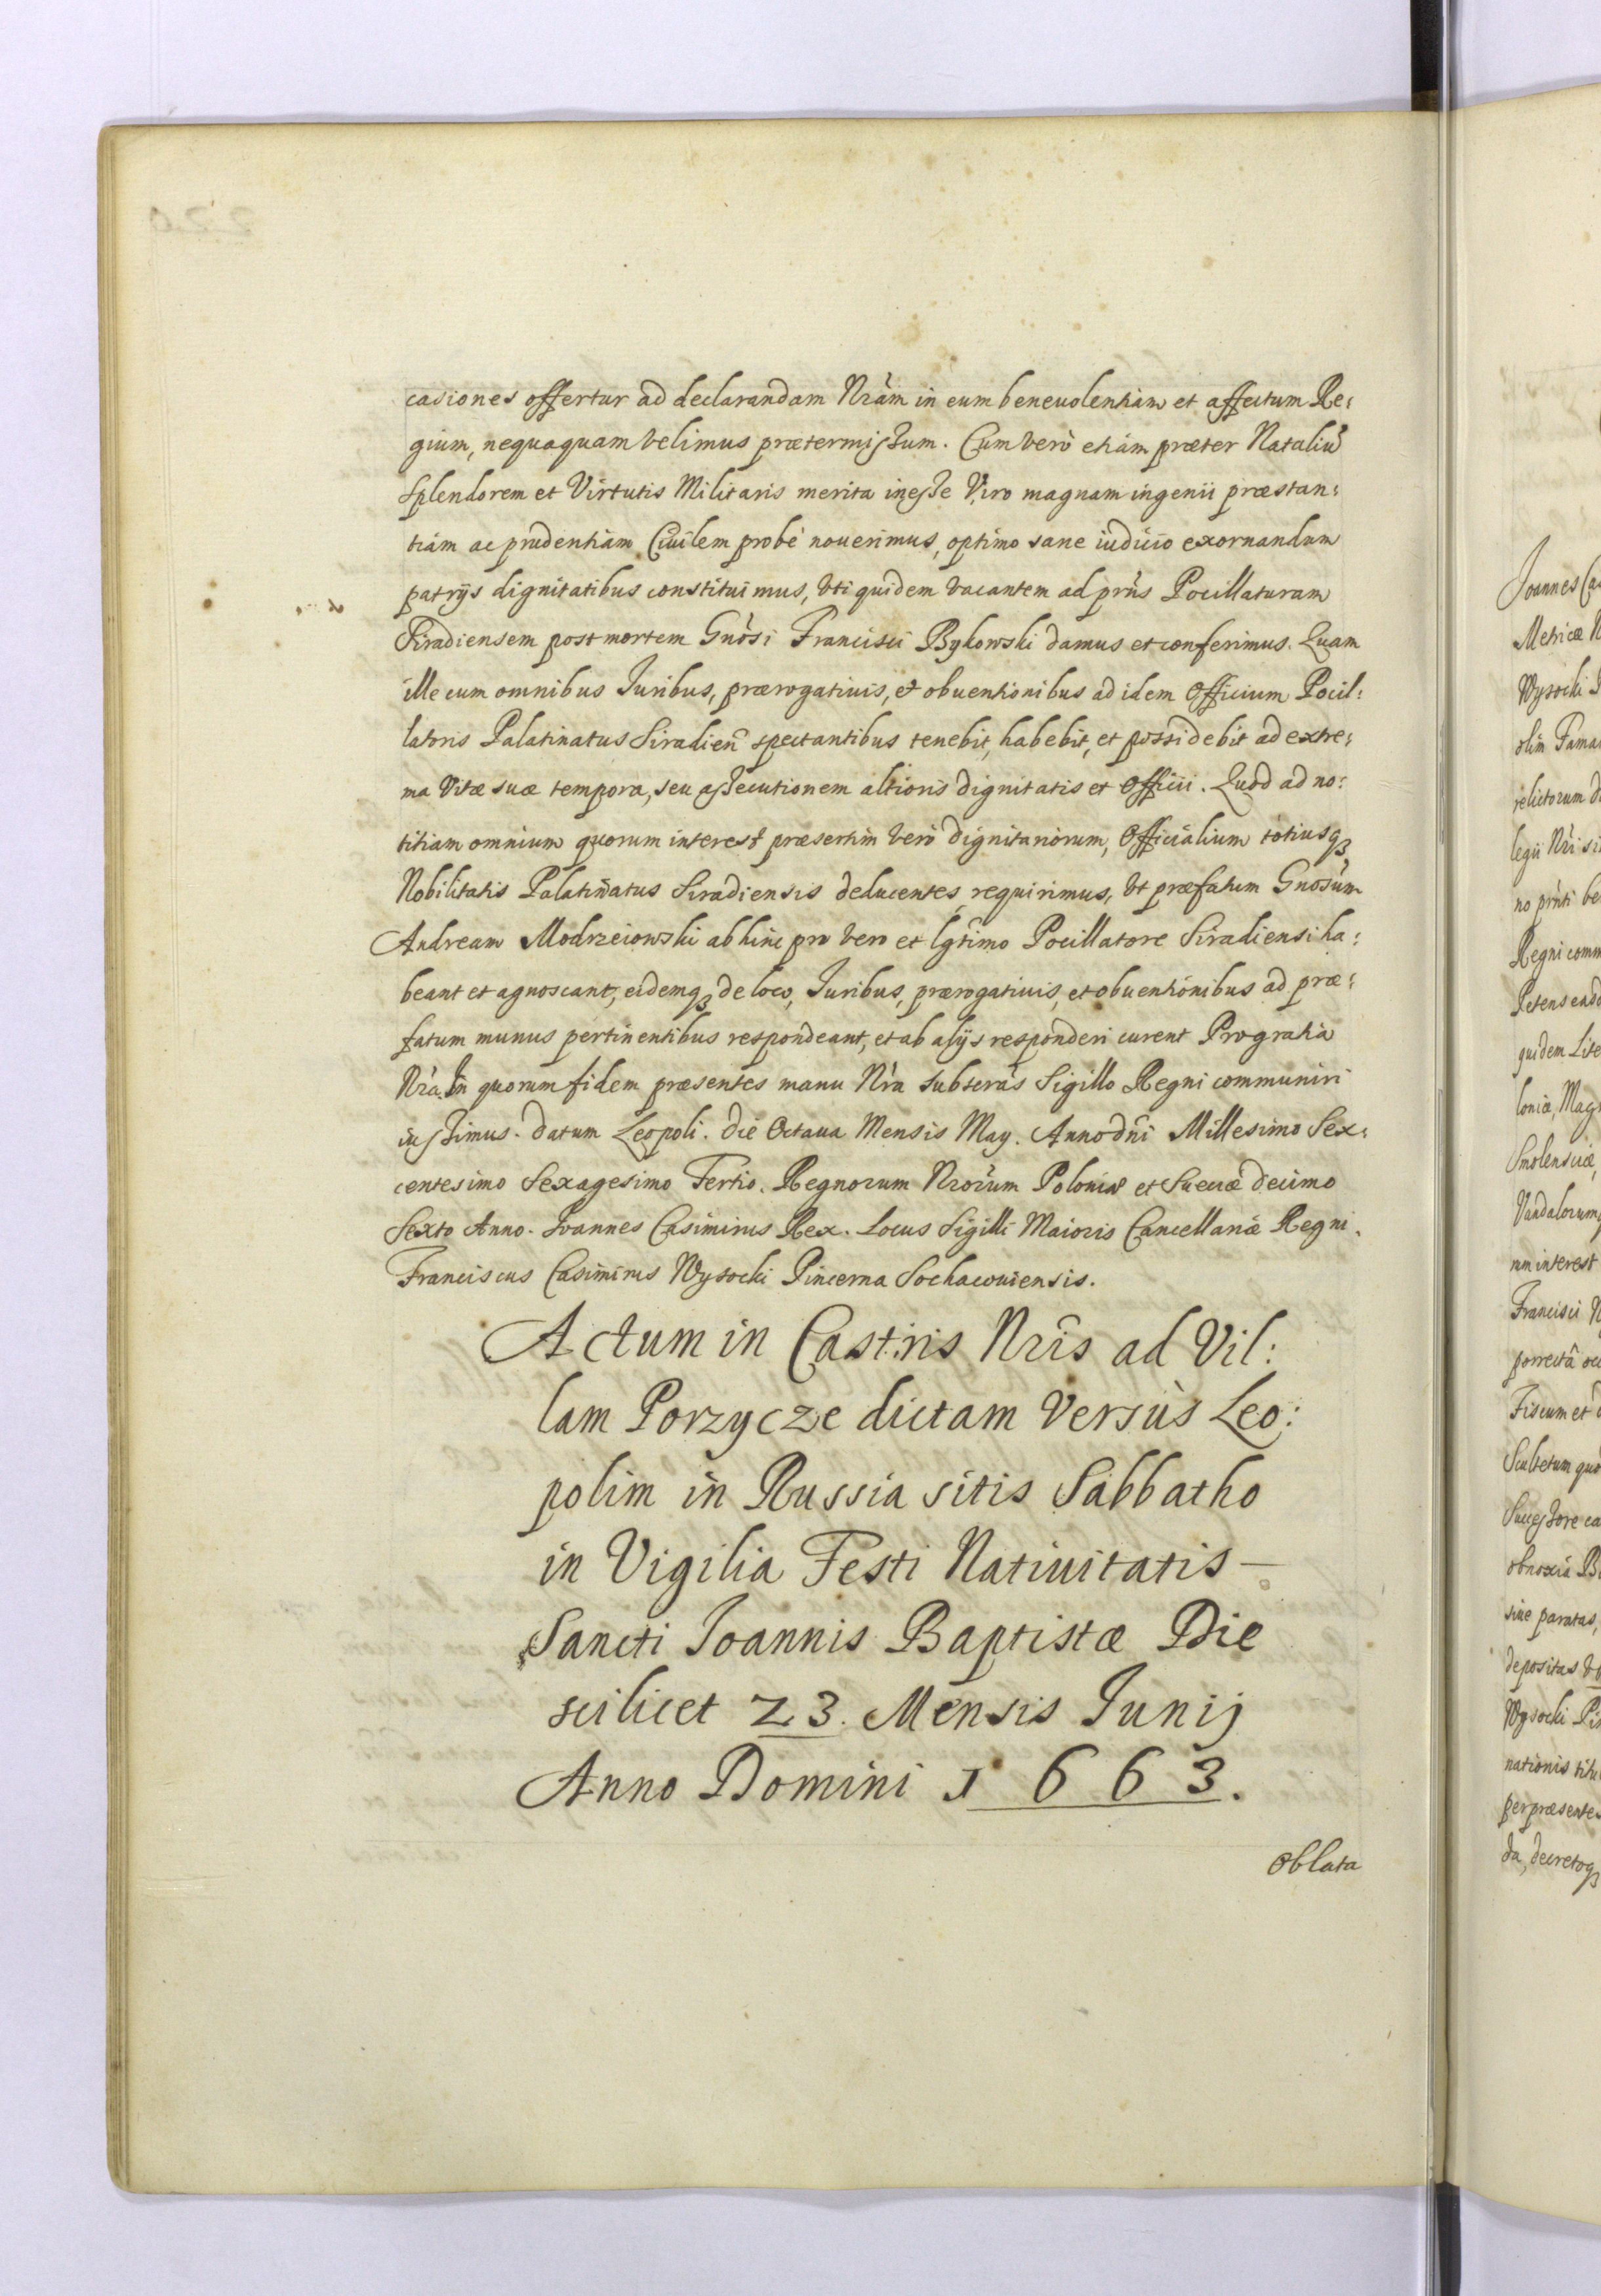 casiones offertur ad declarandam Nram in eum beneuolentiam et affectum Re:
gium, nequaquam velimus prætermissum. Cum verò etiam præter Nataliu
Splendorem et Virtutis Militaris merita inesse Viro magnam ingenii præstan:
tiam ac prudentiam Ciuilem probè nouerimus, optimo sane iudicio exornandum
patrijs dignitatibus constituimus, Vti quidem vacantem ad prns Pocillaturam
Siradiensem post mortem Gnosi Francisci Bykowski damus et conferimus. Quam
ille cum omnibus Juribus, prærogatiuis, et obuentionibus ad idem Officium Pocil:
latoris Palatinatus Siradien spectantibus tenebit, habebit, et possidebit ad extre:
ma Vitæ suæ tempora, seu assecutionem altioris dignitatis et Officii. Quod ad no:
titiam omnium quorum interest præsertim verò dignitariorum, Officialium totiusq3
Nobilitatis Palatinatus Siradiensis deducentes requirimus, Vt præfatum Gnosum
Andream Modrzeiowski abhinc pro vero et lgtimo Pocillatore Siradiensi ha:
beant et agnoscant, eidemq3 de loco, Juribus, prærogatiuis, et obuentionibus ad præ:
fatum munus pertinentibus respondeant, et ab alijs responderi curent Pro gratia
Nra. In quorum fidem præsentes manu Nra subscras Sigillo Regni communiri
iussimus. Datum Leopoli. Die Octaua Mensis May. Anno dni Millesimo Sex:
centesimo Sexagesimo Tertio. Regnorum Nrorum Poloniæ et Sueciæ decimo
Sexto Anno. Joannes Casimirus Rex. Locus Sigilli Maioris Cancellariæ Regni.
Franciscus Casimirus Wysocki Pincerna Sochacouiensis.
Actum in Castris Nris ad Vil:
lam Porzycze dictam Versùs Leo:
polim in Russia sitis Sabbatho
in Vigilia Festi Natiuitatis –
Sancti Joannis Baptistæ Die
scilicet 23. Mensis Junij
Anno Domini 1663.
Oblata
Joannes Ca
Metricæ
Wysocki
olim Fama
relictorum
legii Nri
no prnti be
Regni comm
Petens
quidem Lite
loniæ, Mag
Smolensciæ,
Vandalorum
interest
Francisci
porrecta
Fiscum et
Scultetum quo
Successore ca
obnoxia
siue paratas,
depositas
Wysocki
nationis titu
per præsentes
da, decretoq3